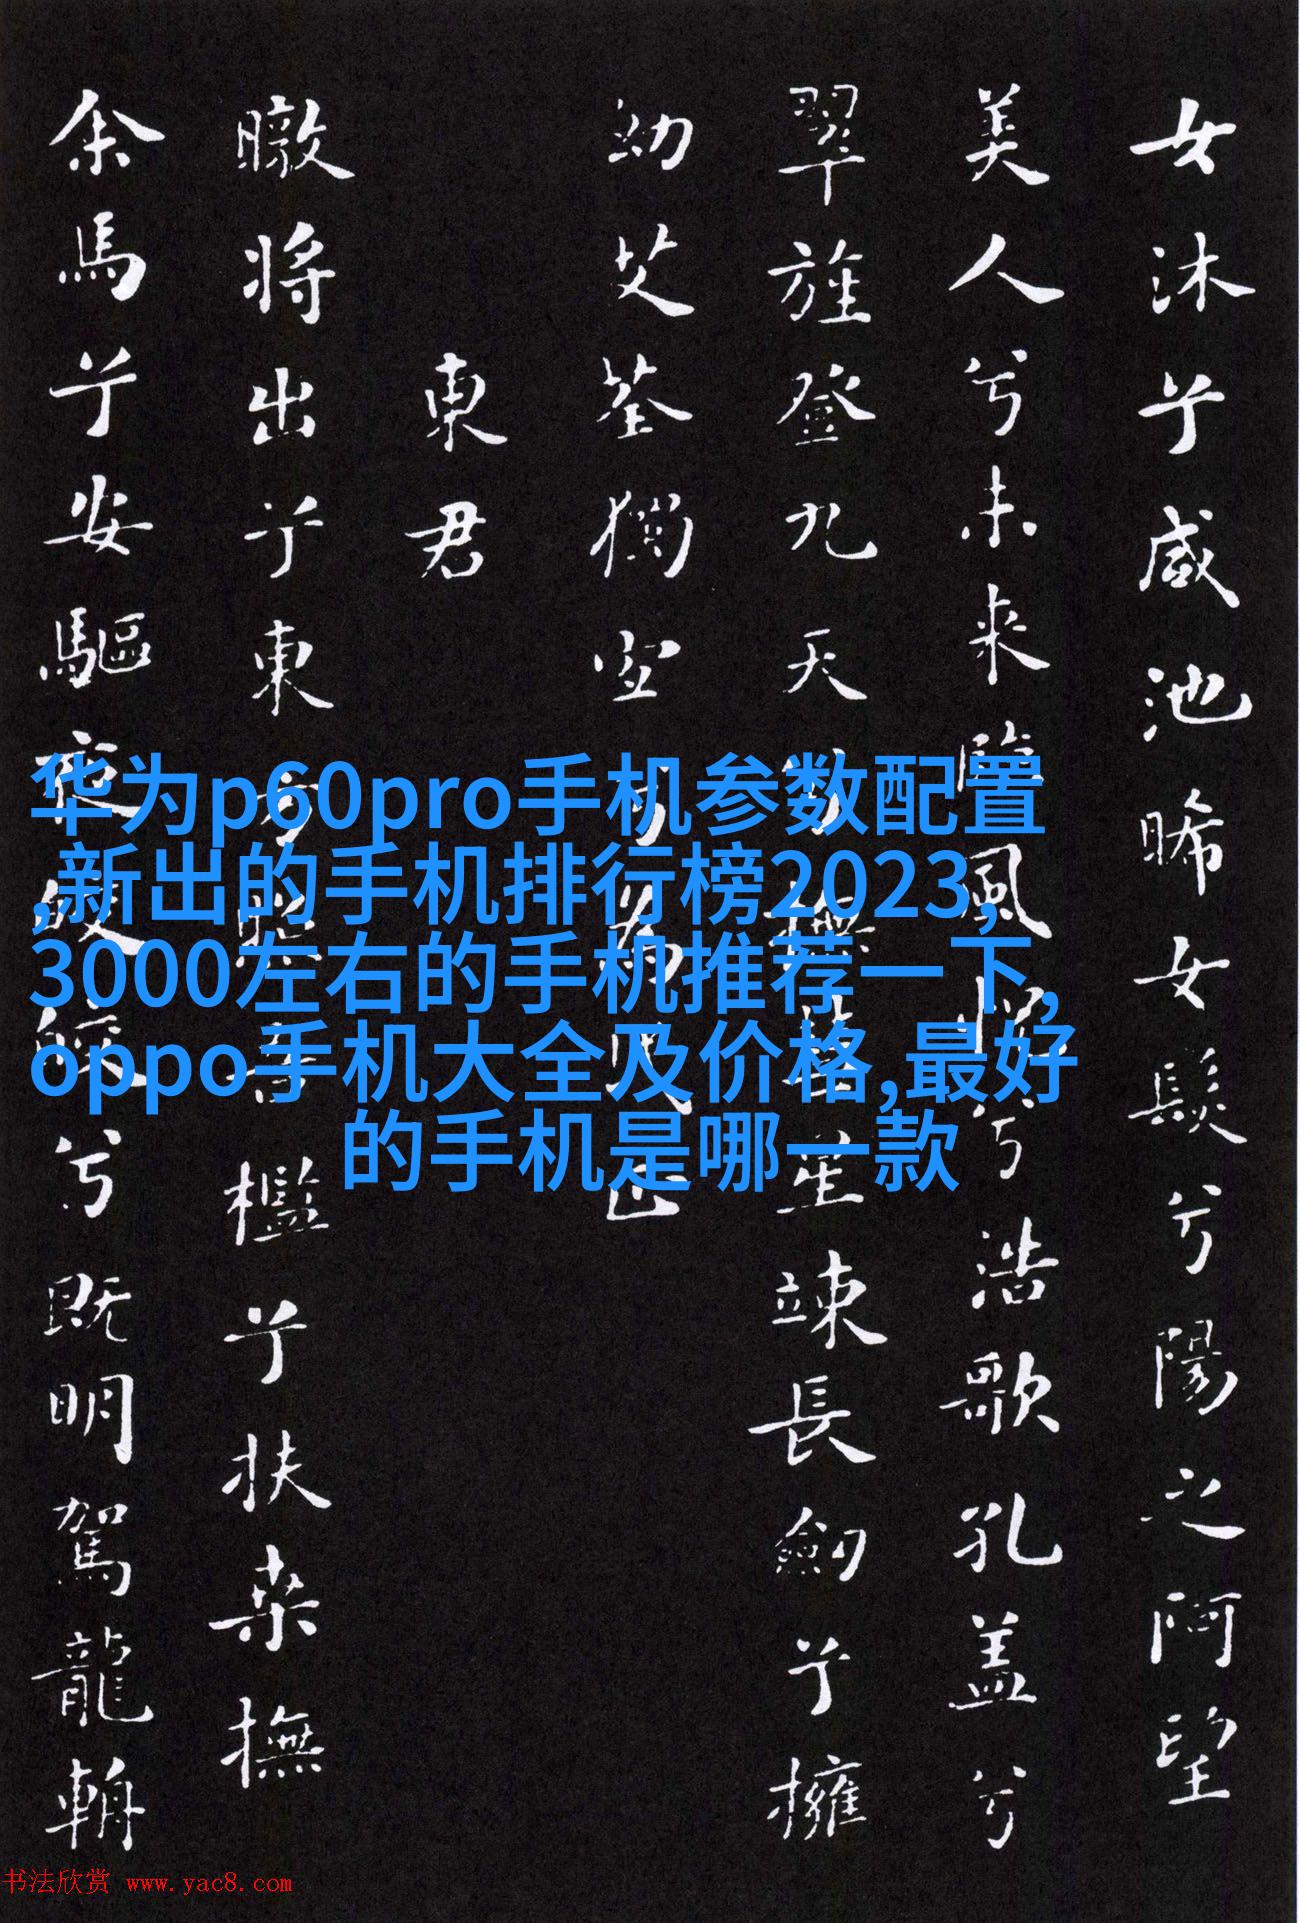 女沐兮咸池晞女髮兮陽之阿望
美人兮未来臨風怳兮浩歌孔盖兮
翠旌登九天兮撫彗星竦長劍兮擁
幼艾荃獨宜兮為民正
東君
暾将出兮東方照吾檻兮扶桑撫
余馬兮安驅夜皎皎兮既明駕龍輈
华为p60pro手机参数配置
,新出的手机排行榜2023,
3000左右的手机推荐一下,
oppo手机大全及价格,最好
的手机是哪一款
书法欣赏 www.yac8.com